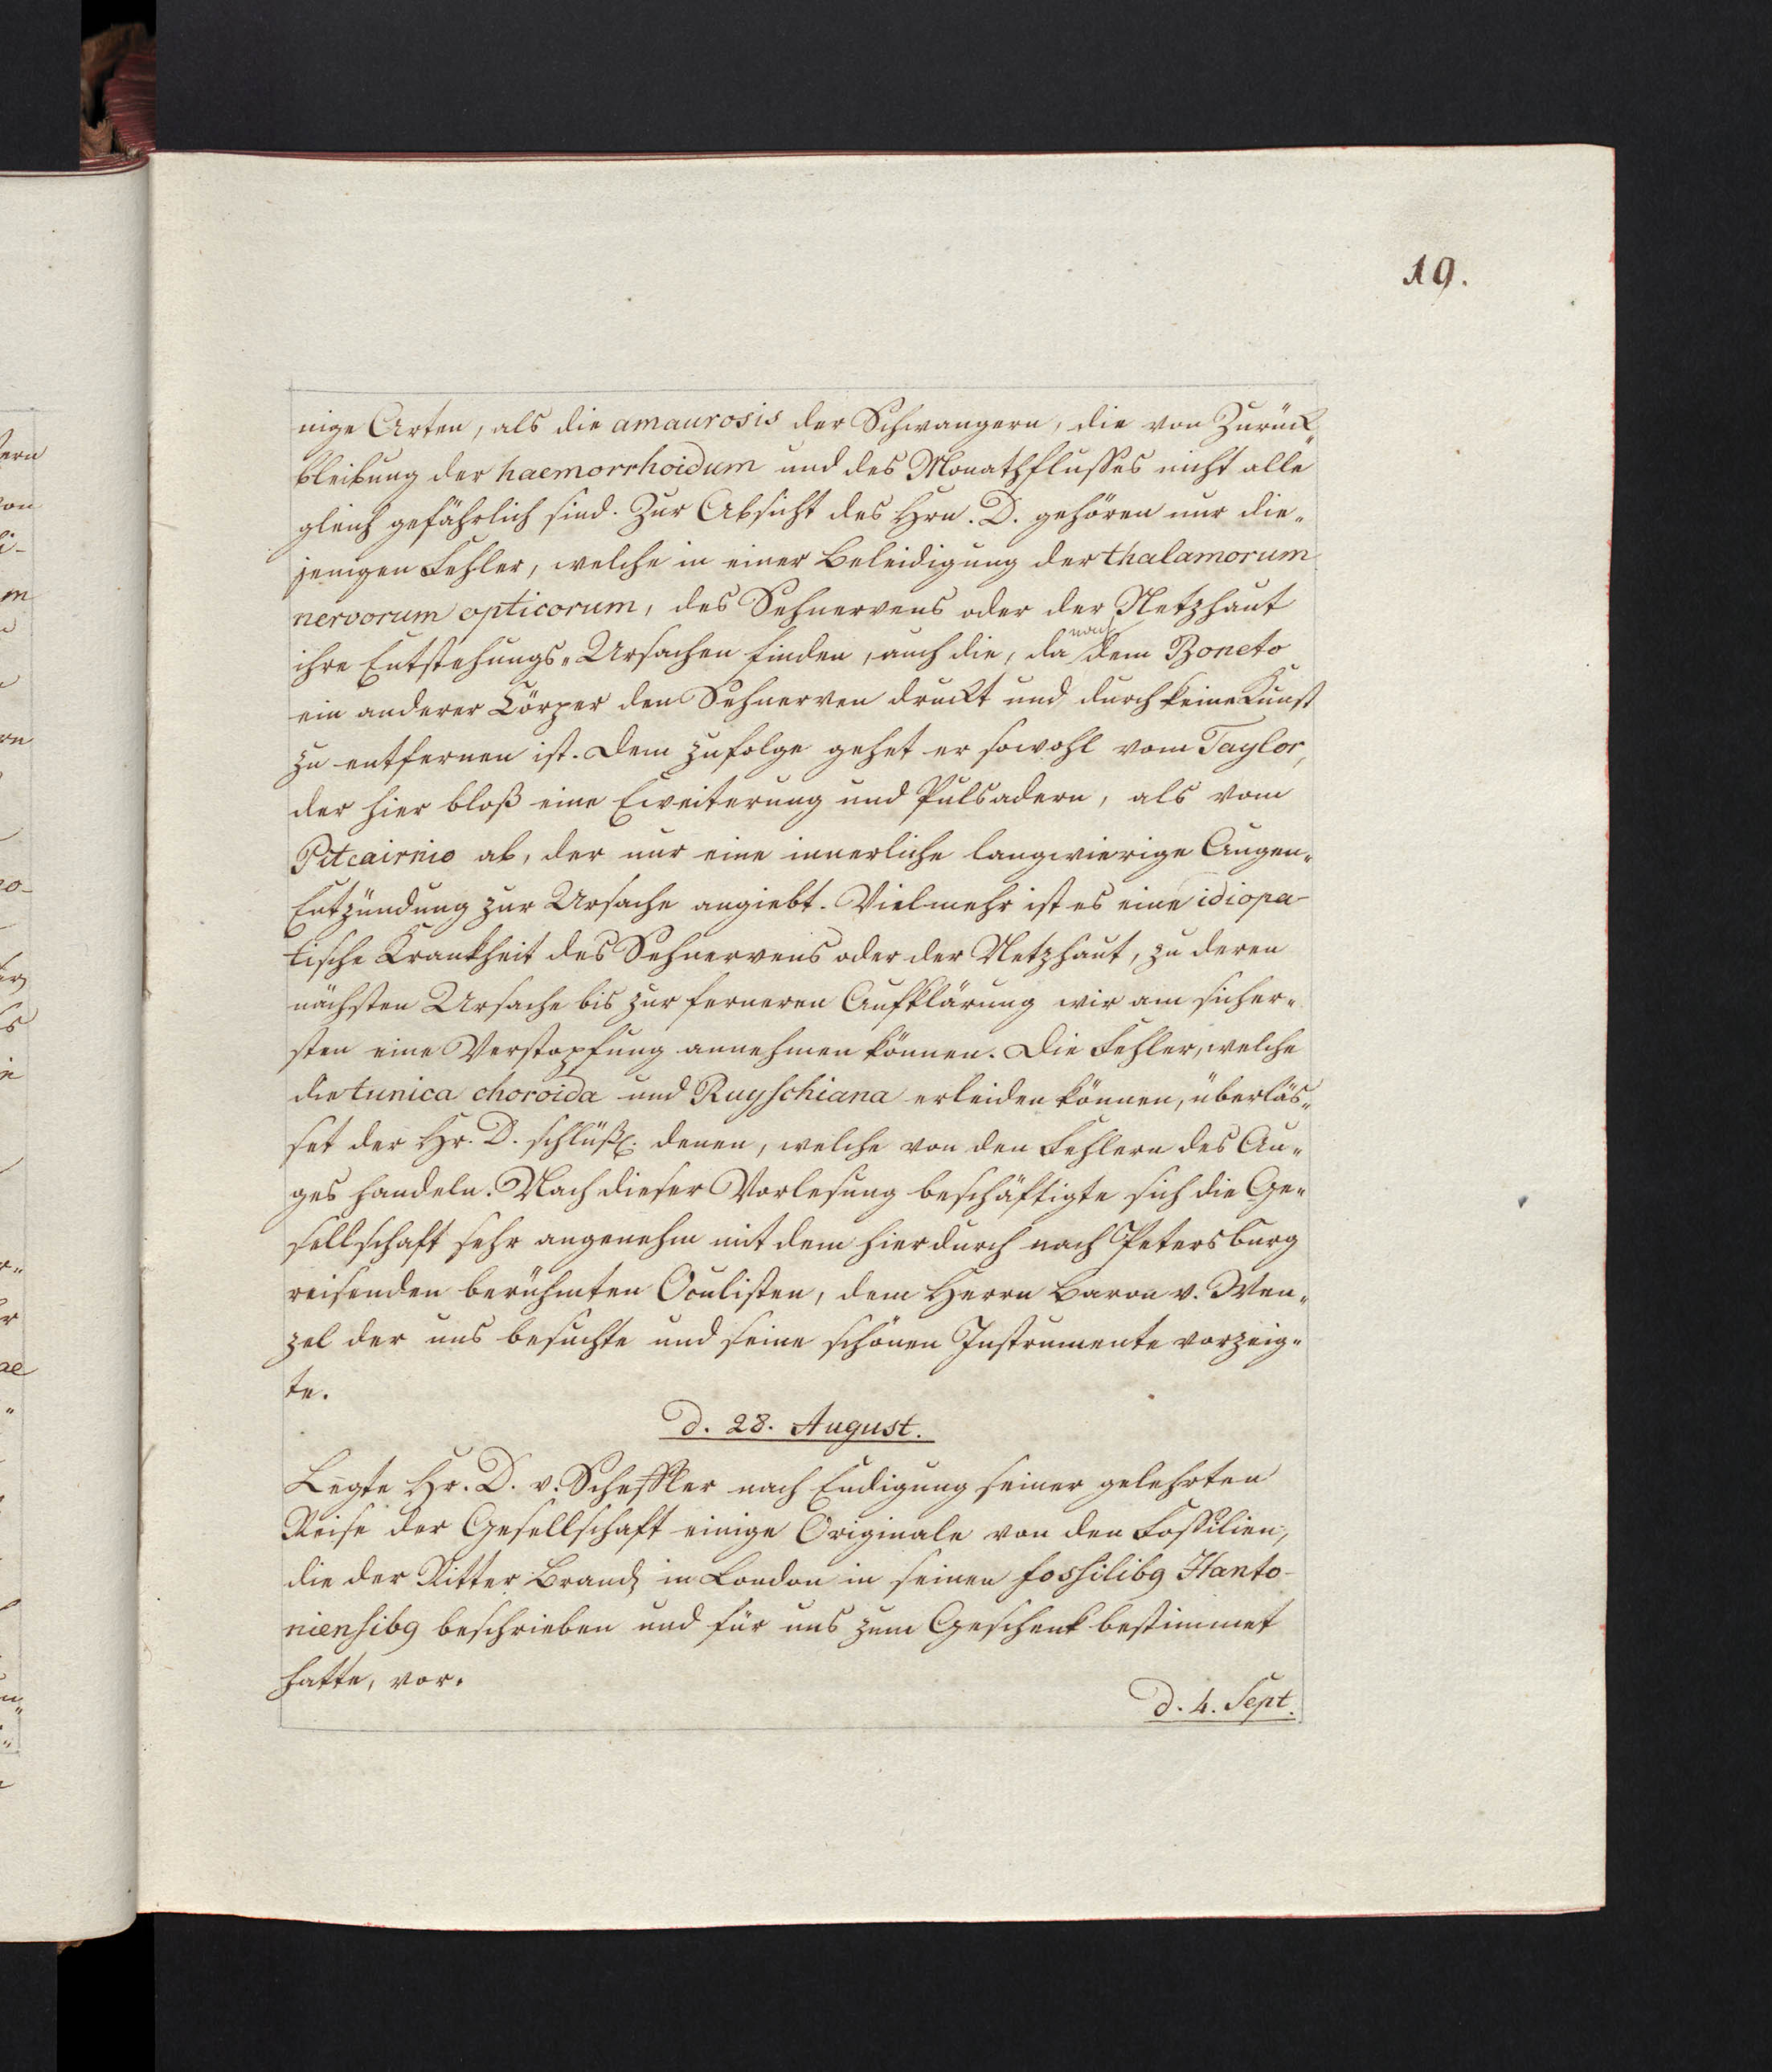 19.
nige Arten, als die amaurosis der Schwangern, die von Zurück„
bleibung der haemorrhoidum und des Monathflusses nicht alle
gleich gefährlich sind. Zur Absicht des Hrn. D. gehören nur die„
jenigen Fehler, welche in einer Beleidigung der thalamorum
nervorum opticorum, des Sehnervens oder der Netzhaut
ihre Entstehungs„Ursachen finden, auch die, da nach dem Boneto
ein anderer Cörper den Sehnerven druckt und durch keine Kunst
zu entfernen ist. Dem zufolge gehet er sowohl vom Taylor,
der hier bloß eine Eweiterung und Pulsadern, als vom
Pitcairnio ab, der nur eine innerliche langwierige Augen„
Entzündung zur Ursache angiebt. Vielmehr ist es eine idiopa-
tische Krankheit des Sehnervens oder der Netzhaut, zu deren
nächsten Ursache bis zur ferneren Aufklärung wir am sicher„
sten eine Verstopfung annehmen können. Die Fehler, welche
die tunica choroida und Ruyschiana erleiden können, überläs„
set der Hr. D. schlüßl. denen, welche von den Fehlern des Au„
ges handeln. Nach dieser Vorlesung beschäftigte sich die Ge„
sellschaft sehr angenehm mit dem hierdurch nach Petersburg
reisenden berühmten Oculisten, dem Herrn Baron v. Wen„
zel der uns besuchte und seine schönen Instrumente vorzeig„
te.
d. 28. August.
Legte Hr. D. v. Scheffler nach Endigung seiner gelehrten
Reise der Gesellschaft einige Originale von den Fossilien,
die der Ritter Brand in London in seinen fossilibg Hanto-
niensibg beschrieben und für uns zum Geschenk bestimmet
hatte, vor.
d. 4. Sept.